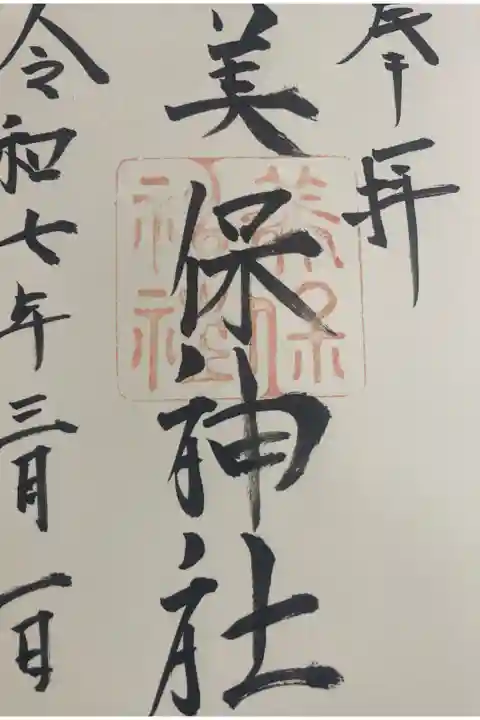 奉拝
美保神社
美保
神社
令和七年三月一日